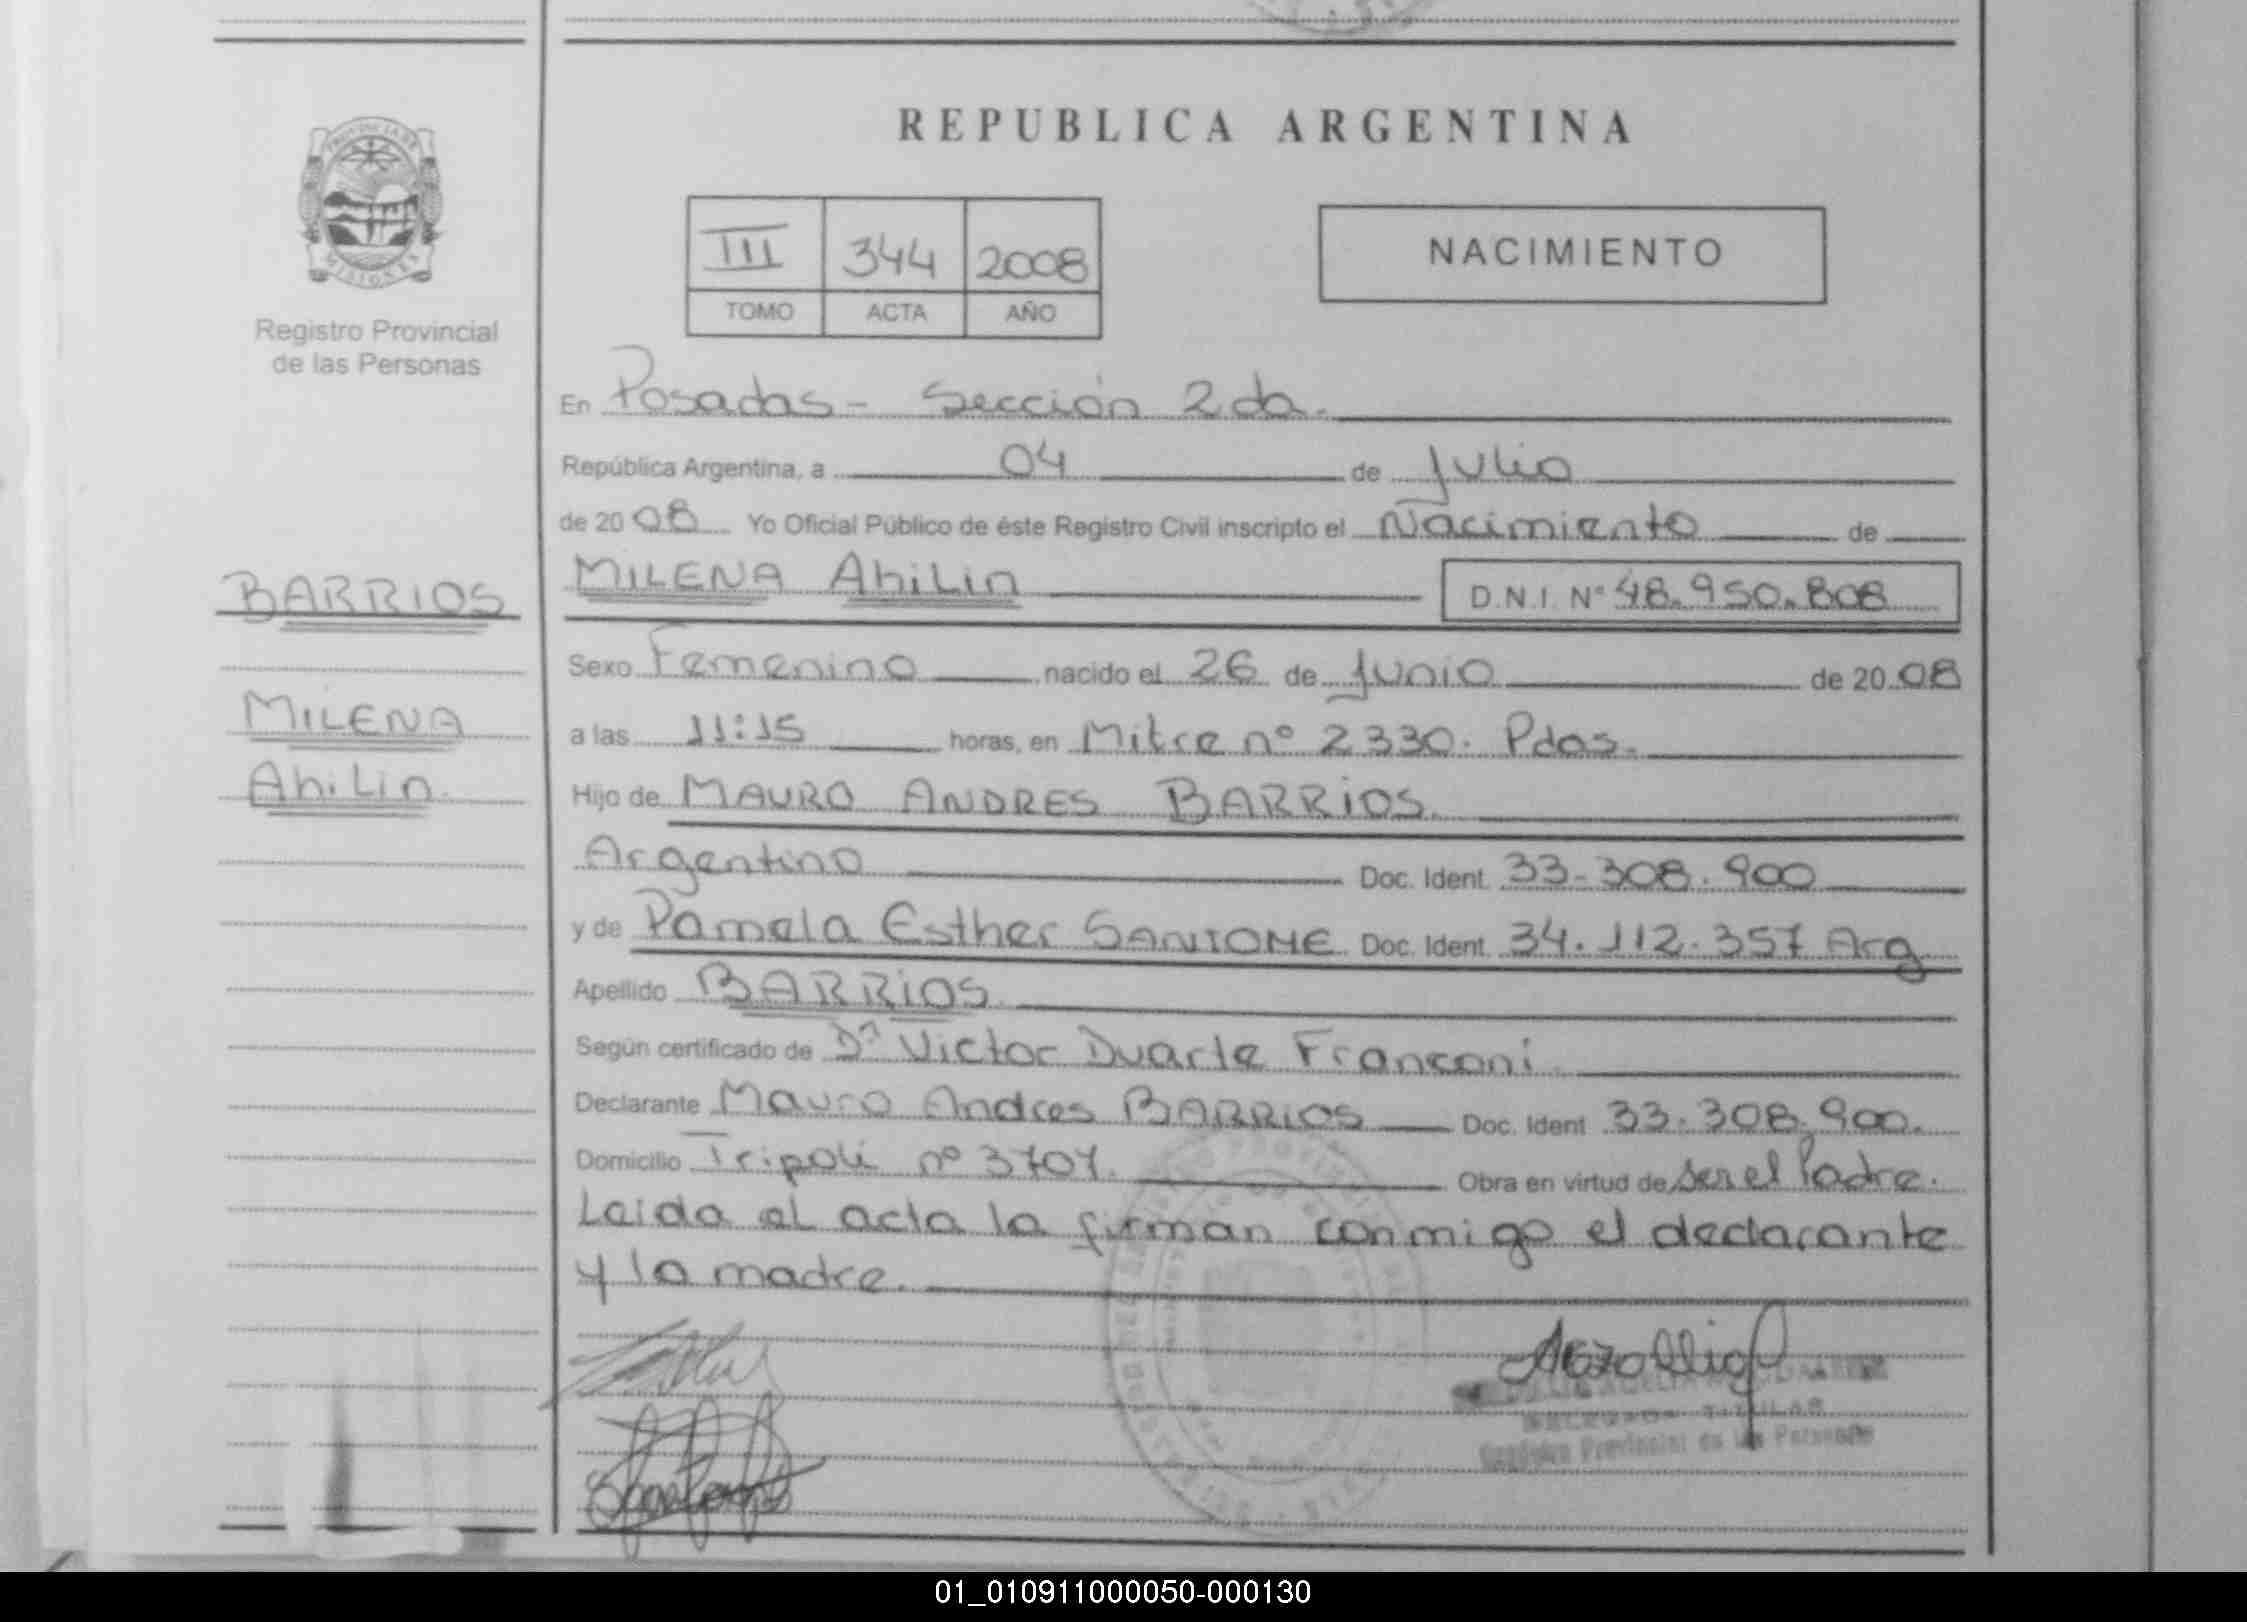 REPUBLICA ARGENTINA
PROVINCIA DE
MISIONES
Registro Provincial
de las Personas
III 344 2008
TOMO ACTA AÑO
NACIMIENTO
En Posadas - Sección 2da.
República Argentina, a 04 de Julio
de 20 08 Yo Oficial Público de éste Registro Civil inscripto el Nacimiento de
BARRIOS
MILENA
Ahilin.
MILENA Ahilin D.N.I. Nº 48.950.808
Sexo Femenino nacido el 26 de Junio de 20 08
a las 11:15 horas, en Mitre nº 2330. Pdas.
Hijo de MAURO ANDRES BARRIOS.
Argentino Doc. Ident. 33.308.900
y de Pamela Esther SANTOME Doc. Ident. 34.112.357 Arg
Apellido BARRIOS
Según certificado de Dr Victor Duarte Franconi
Declarante Mauro Andres BARRIOS Doc. Ident 33.308.900.
Domicilio Tripoli nº 3707. Obra en virtud de ser el Padre.
Leida el acta la firman conmigo el declarante
y la madre.
TITULAR
Provincial de las Personas
01_010911000050-000130